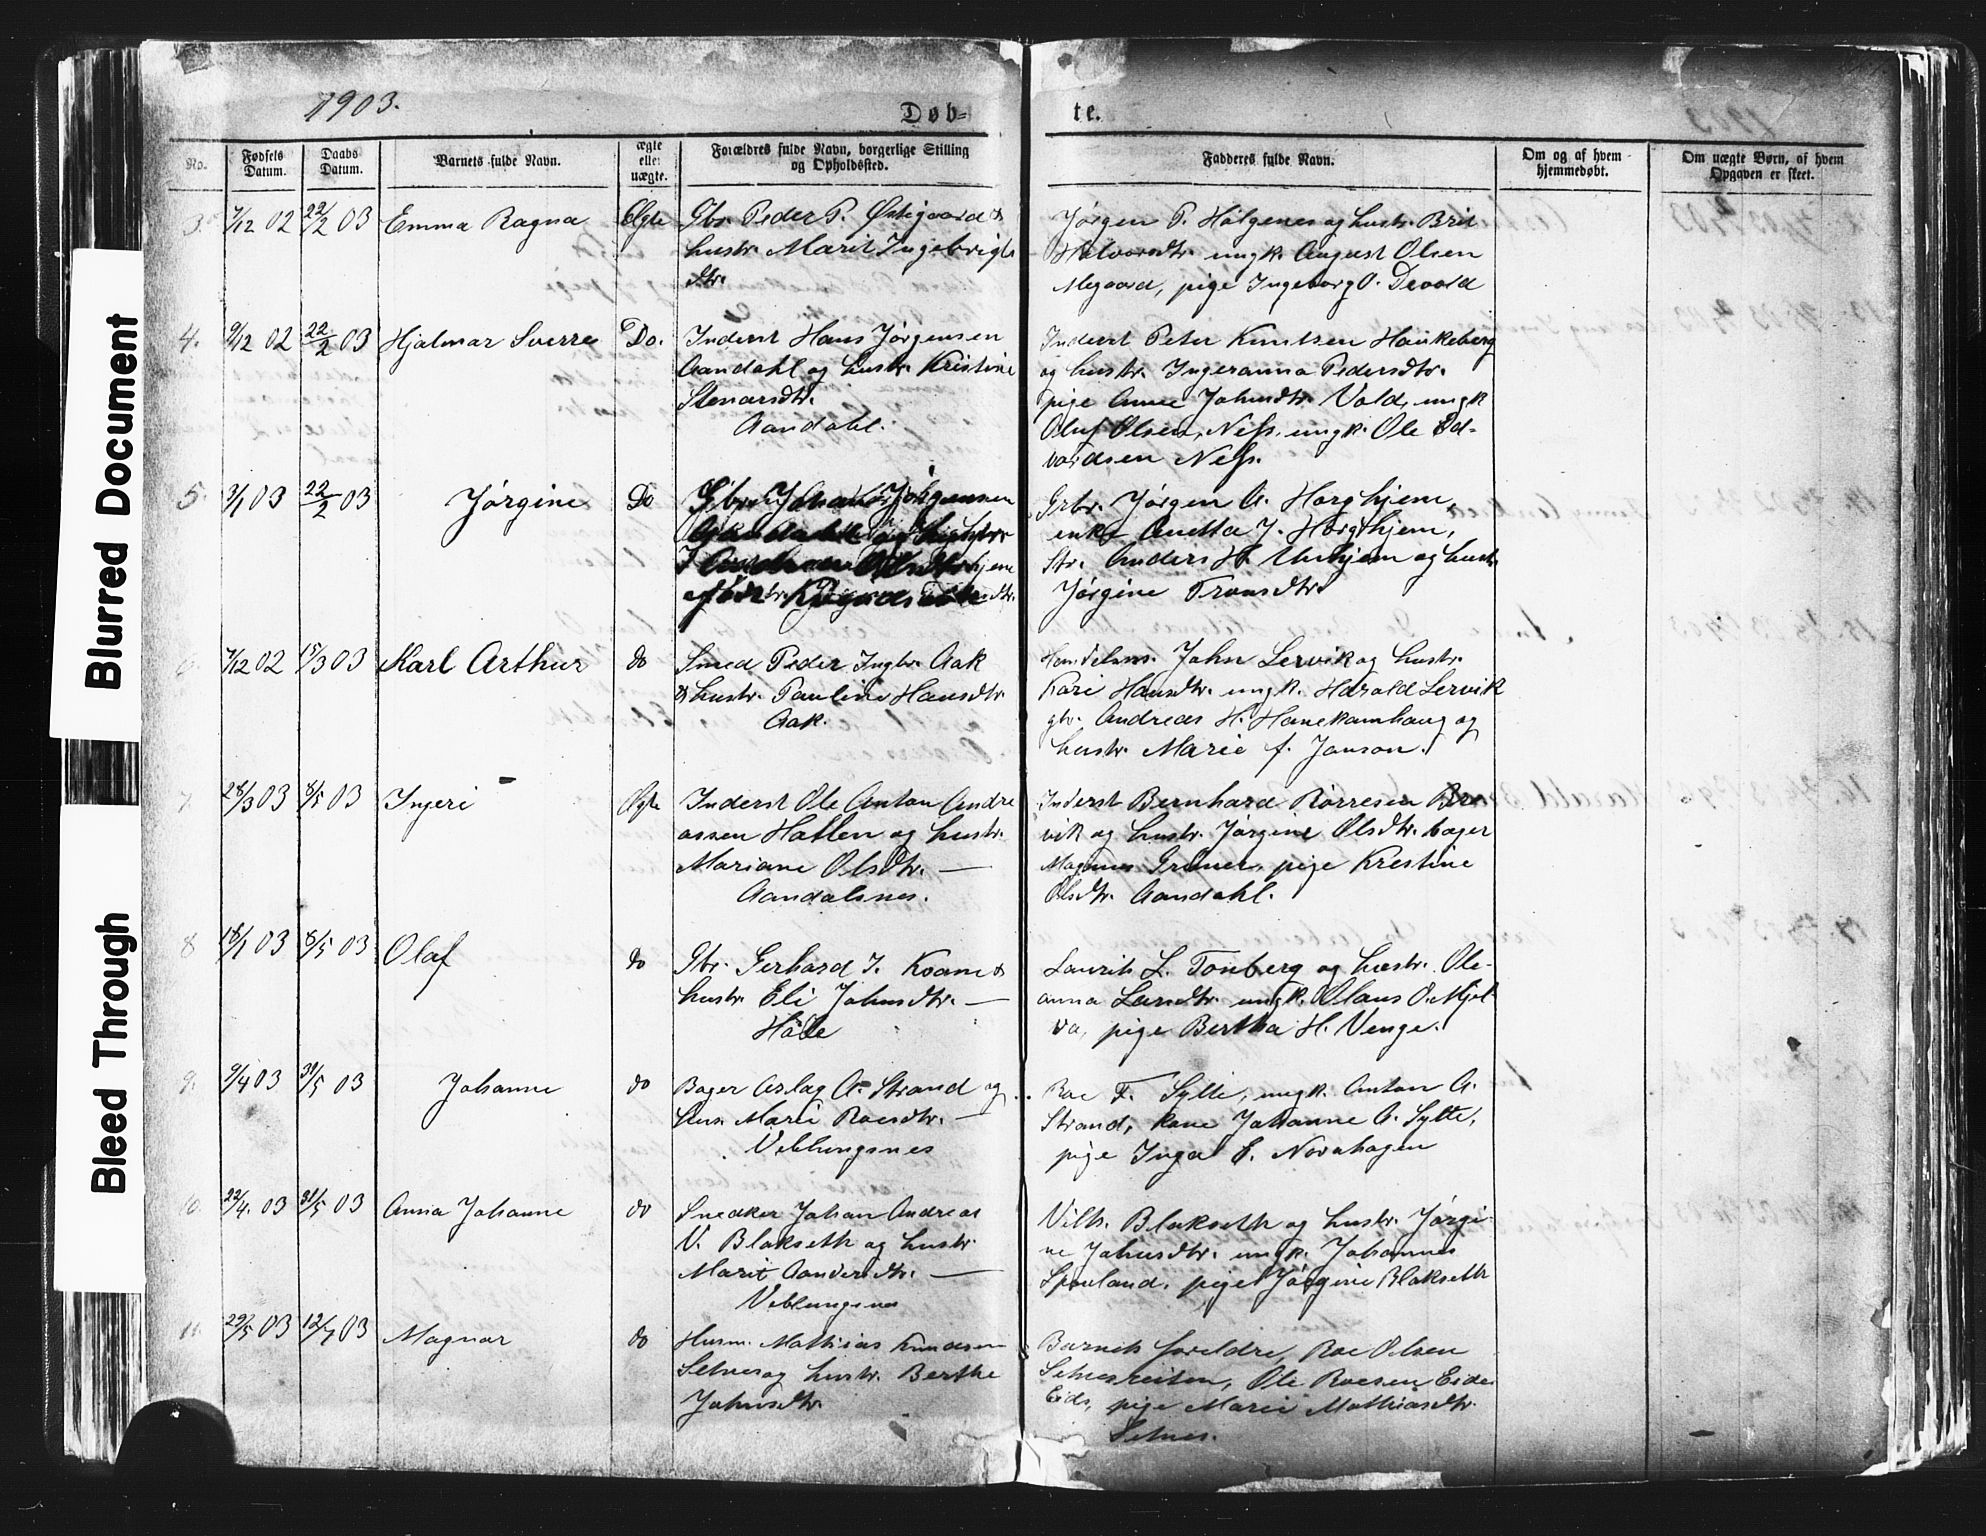 Blurred Document
Bleed Through
1903.
Døb-
te.
No.
Fødsels
Datum.
Daabs
Datum.
Barnets fulde Navn.
ægte
eller
uægte.
Forældres fulde Navn, borgerlige Stilling
og Opholdssted.
Fadderes fulde Navn.
Om og af hvem
hjemmedøbt.
Om uægte Børn, af hvem
Opgaven er skeet.
3. 7/12 02 22/2 03 Emma Ragna Ægte
Gbr. Peder P. Østigaard &
hustr. Marit Ingebrigts
dtr.
Jørgen P. Hølgenes og hustr. Brit
Halvorsdtr. ungk. August Olsen
pige Ingeborg O. Devold
4. 9/12 02 22/2 03 Hjalmar Sverre Do.
Inderst Hans Jørgensen
Aandahl og hustr. Kristine
Stenarsdtr.
Aandahl.
Inderst Peter Knutsen Haukeberg
og hustr. Ingeranna Pedersdtr.
pige Anne Johnsdtr. Vold, ungk
Oluf Olsen, Ness, ungk. Ole Ed-
vardsen Ness.
5. 3/1 03 22/2 03 Jørgine Do
Gbr. Jørgen A. Horghjem,
enke Anetta J. Horghjem,
Str. Anders H. Unhjem og hustr.
Jørgine Tronsdtr.
6. 7/12 02 15/3 03 Karl Arthur do
Smed Peder Ingbr. Aak
& hustr. Pauline Hansdtr.
Aak.
Handelsm. John Lervik og hustr.
Kari Hansdtr. ungk. Harald Lervik
gbr. Andreas H. Hanekamhaug og
hustr. Marie f. Janson.
7. 28/3 03 8/5 03 Ingeri Ægte
Inderst Ole Anton Andre
assen Hatlen og hustr.
Mariane Olsdtr. —
Aandalsnes.
Inderst Bernhard Rørresen Bre
vik og hustr. Jørgine Olsdtr. bager
Magnus Grøner, pige Krestine
Olsdtr. Aandahl.
8 18/1 03 8/5 03 Olaf do
Gbr. Gerhard J. Koam &
hustr. Eli Johnsdtr. —
Hole
Laurits L. Tonberg og hustr. Ole-
anna Larsdtr. ungk. Klaus O. Mjel
va, pige Bertha H. Venge.
9. 9/4 03 31/5 03 Johanne do
Bager Aslag A. Strand og
Hus. Marie Roesdtr. —
Veblungsnes
Roe F. Sylte, ungk. Anton A.
Strand, kone Johanne A. Sylte,
pige Inga E. Norvhagen
10. 22/4. 03 31/5 03 Anna Johanne do
Snedker Johan Andreas
V. Blakseth og hustr.
Marit Aandersdtr. —
Veblungsnes
Vilh. Blakseth og hustr. Jørgi-
ne Johnsdtr. ungk. Johannes
pige Jørgine Blakseth
11. 29/5 03 12/7 03 Magnar do
Husm. Mathias Knudsen
Setnes og hustr. Berthe
Johnsdtr.
Barnets foreldre, Roe Olsen
Setnesreiten, Ole Roesen Eide
Eids, pige Marie Mathiasdtr.
Setnes.